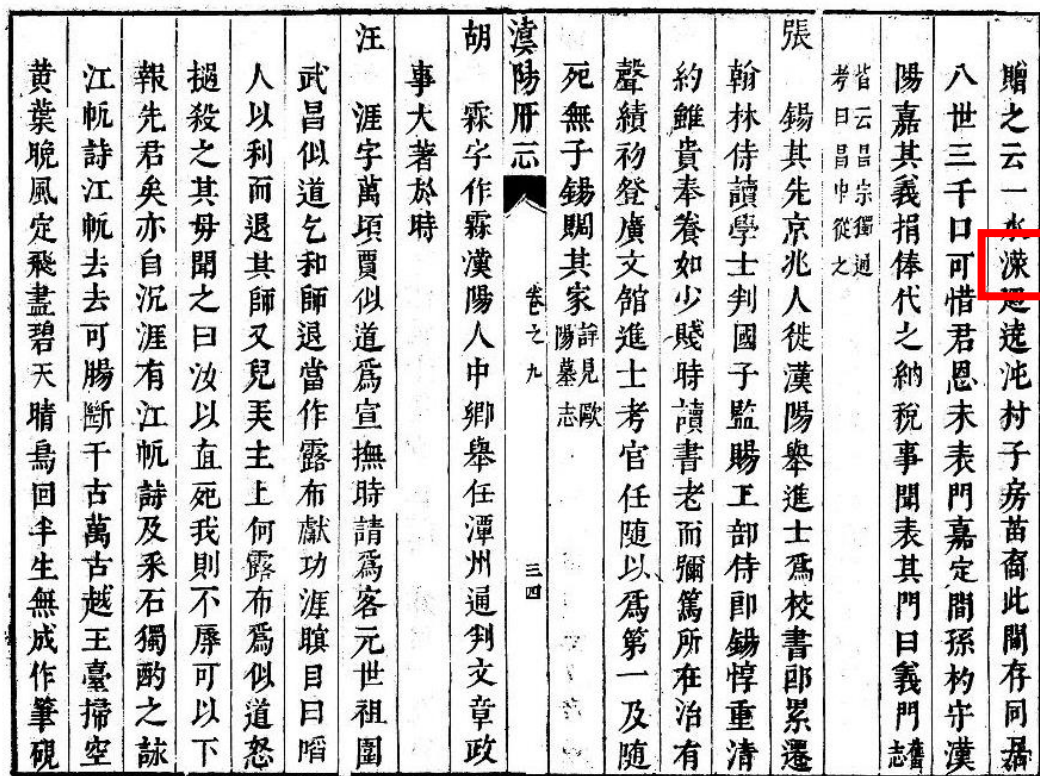 贈之云一水濚廻遶沌村子房苗裔此間存同居
八世三千口可惜君恩未表門嘉定間孫杓守漢
陽嘉其義捐俸代之納稅事聞表其門曰義門舊志
皆云昌宗獨通考曰昌中從之
張 錫其先京兆人徙漢陽舉進士爲校書郎累遷
翰林侍讀學士判國子監賜工部侍郎錫惇重清
約雖貴奉養如少賤時讀書老而彌篤所在治有
聲績初登廣文館進士考官任隨以爲第一及隨
死無子錫賙其家詳見歐陽墓志
漢陽府志 卷之九 三四
胡 霖字作霖漢陽人中鄉舉任潭州通判文章政
事大著於時
汪 涯字萬頃賈似道爲宣撫時請爲客元世祖圍
武昌似道乞和師退當作露布獻功涯瞋目曰啗
人以利而退其師又兒美主上何露布爲似道怒
撾殺之其母聞之曰汝以直死我則不辱可以下
報先君矣亦自沉涯有江帆詩及釆石獨酌之詠
江帆詩江帆去去可腸斷千古萬古越王臺掃空
黄葉晚風定飛盡碧天晴鳥回半生無成作筆硯